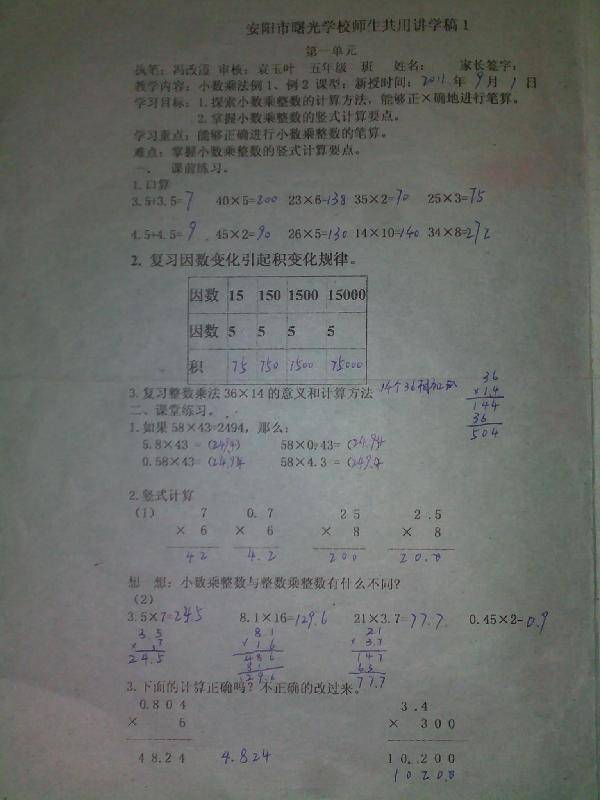 安阳市曙光学校师生共用讲学稿1
第一单元
执笔：冯改霞 审核：袁玉叶 五年级 班 姓名： 家长签字：
教学内容：小数乘法例1、例2 课型：新授时间：2011 年 9 月 1 日
学习目标：1.探索小数乘整数的计算方法，能够正×确地进行笔算。
2.掌握小数乘整数的竖式计算要点。
学习重点：能够正确进行小数乘整数的笔算。
难点：掌握小数乘整数的竖式计算要点。
一、 课前练习。
1.口算
3.5+3.5=7 40×5=200 23×6=138 35×2=70 25×3=75
4.5+4.5=9 45×2=90 26×5=130 14×10=140 34×8=272
2. 复习因数变化引起积变化规律。
因数 15 150 1500 15000
因数 5 5 5 5
积 75 750 1500 75000
3.复习整数乘法36×14的意义和计算方法 14个36相加
36
×14
144
36
504
二、课堂练习。
1.如果58×43=2494，那么：
5.8×43 =（249.4） 58×0.43=（24.94）
0.58×43=（24.94） 58×4.3 =（249.4）
2.竖式计算
（1） 7 0.7 25 2.5
× 6 × 6 × 8 × 8
42 4.2 200 20.0
想一想：小数乘整数与整数乘整数有什么不同？
（2）
3.5×7=24.5 8.1×16=129.6 21×3.7=77.7 0.45×2=0.9
3.5 8.1 21
× 7 × 16 × 3.7
24.5 486 147
81 63
129.6 77.7
3.下面的计算正确吗？不正确的改过来。
0.804 3.4
× 6 × 300
48.24 4.824 10.200
1020.0